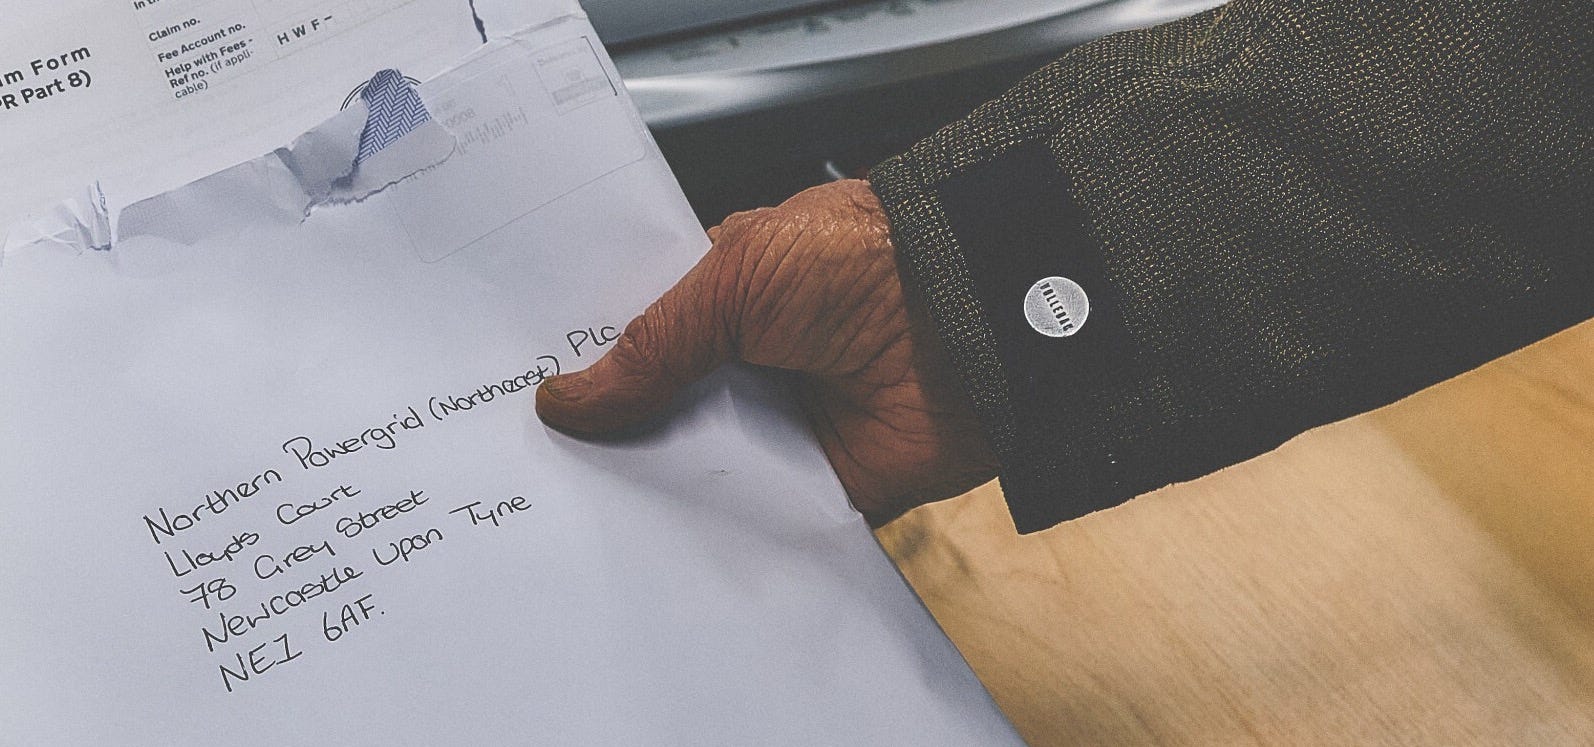 In th
Claim no.
Fee Account no.
Help with Fees -
Ref no. (if appli-
cable)
H W F -
m Form
R Part 8)
Northern Powergrid (Northeast) Plc
Lloyds Court
78 Grey Street
Newcastle Upon Tyne
NE1 6AF.